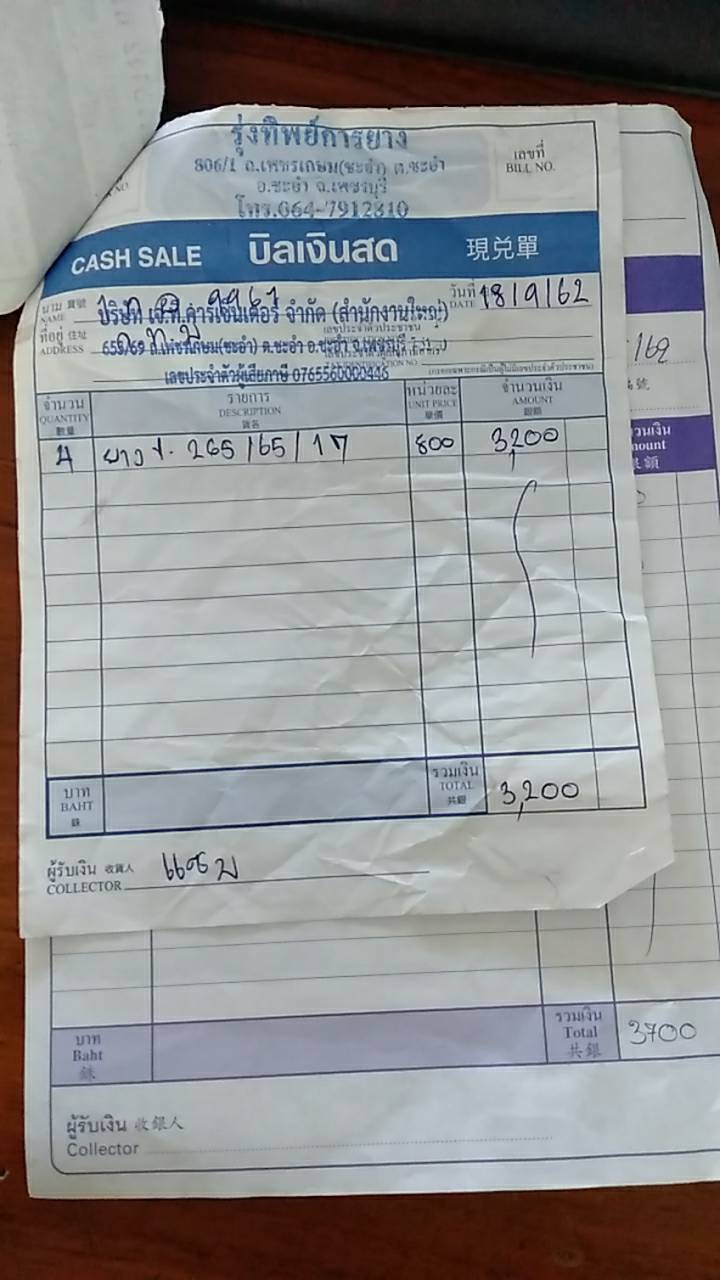 รุ่งทิพย์การยาง
806/1 ถ.เพชรเกษม(ชะอำ) ต.ชะอำ
อ.ชะอำ จ.เพชรบุรี
โทร.064-7912810
เลขที่
BILL NO.
CASH SALE บิลเงินสด 現兑單
นาม 寶號
NAME
9961
บริษัท เจ.ที.คาร์เซ็นเตอร์ จำกัด (สำนักงานใหญ่)
วันที่
DATE 18/9/62
ที่อยู่ 住址
ADDRESS
659/69 ถ.เพชรเกษม(ชะอำ) ต.ชะอำ อ.ชะอำ จ.เพชรบุรี
เลขประจำตัวประชาชน
เลขประจำตัวผู้เสียภาษี 0765560000446
จำนวน รายการ หน่วยละ จำนวนเงิน
QUANTITY DESCRIPTION UNIT PRICE AMOUNT
數量 貨名 單價 銀額
4 ยาง 265/65/17 800 3,200
บาท
BAHT
銖
รวมเงิน
TOTAL
共銀
3,200
ผู้รับเงิน 收貨人
COLLECTOR
/62
號
วนเงิน
ount
額
บาท
Baht
銖
รวมเงิน
Total
共銀
3700
ผู้รับเงิน 收銀人
Collector